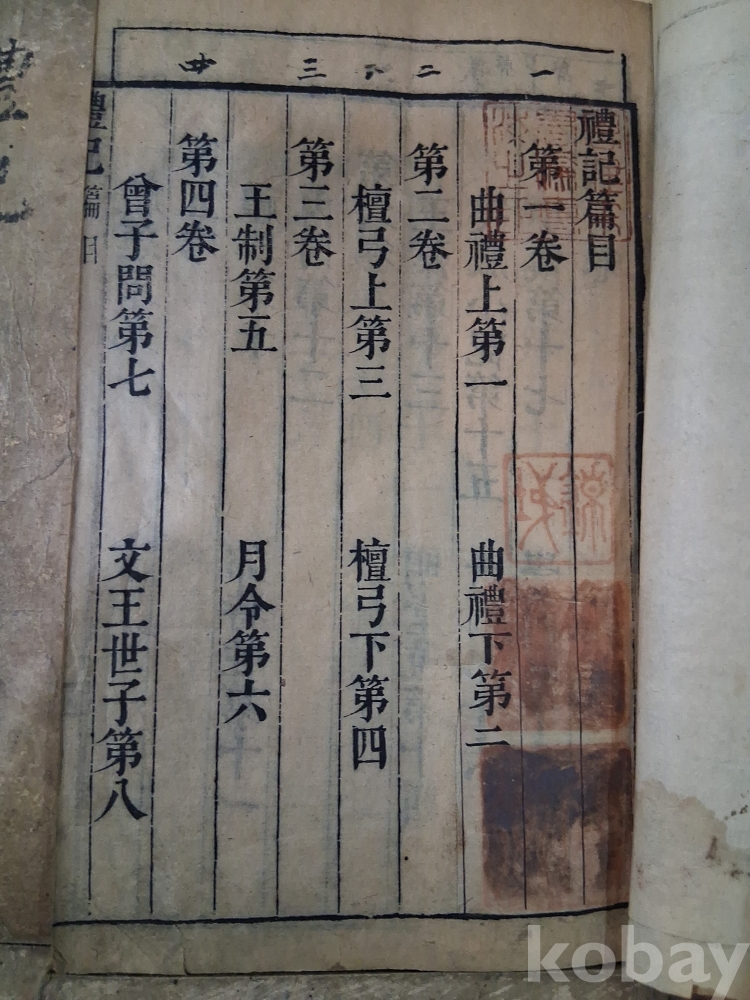 禮記篇目
第一卷
曲禮上第一 曲禮下第二
第二卷
檀弓上第三 檀弓下第四
第三卷
王制第五 月令第六
第四卷
曾子問第七 文王世子第八
禮記 篇目
kobay